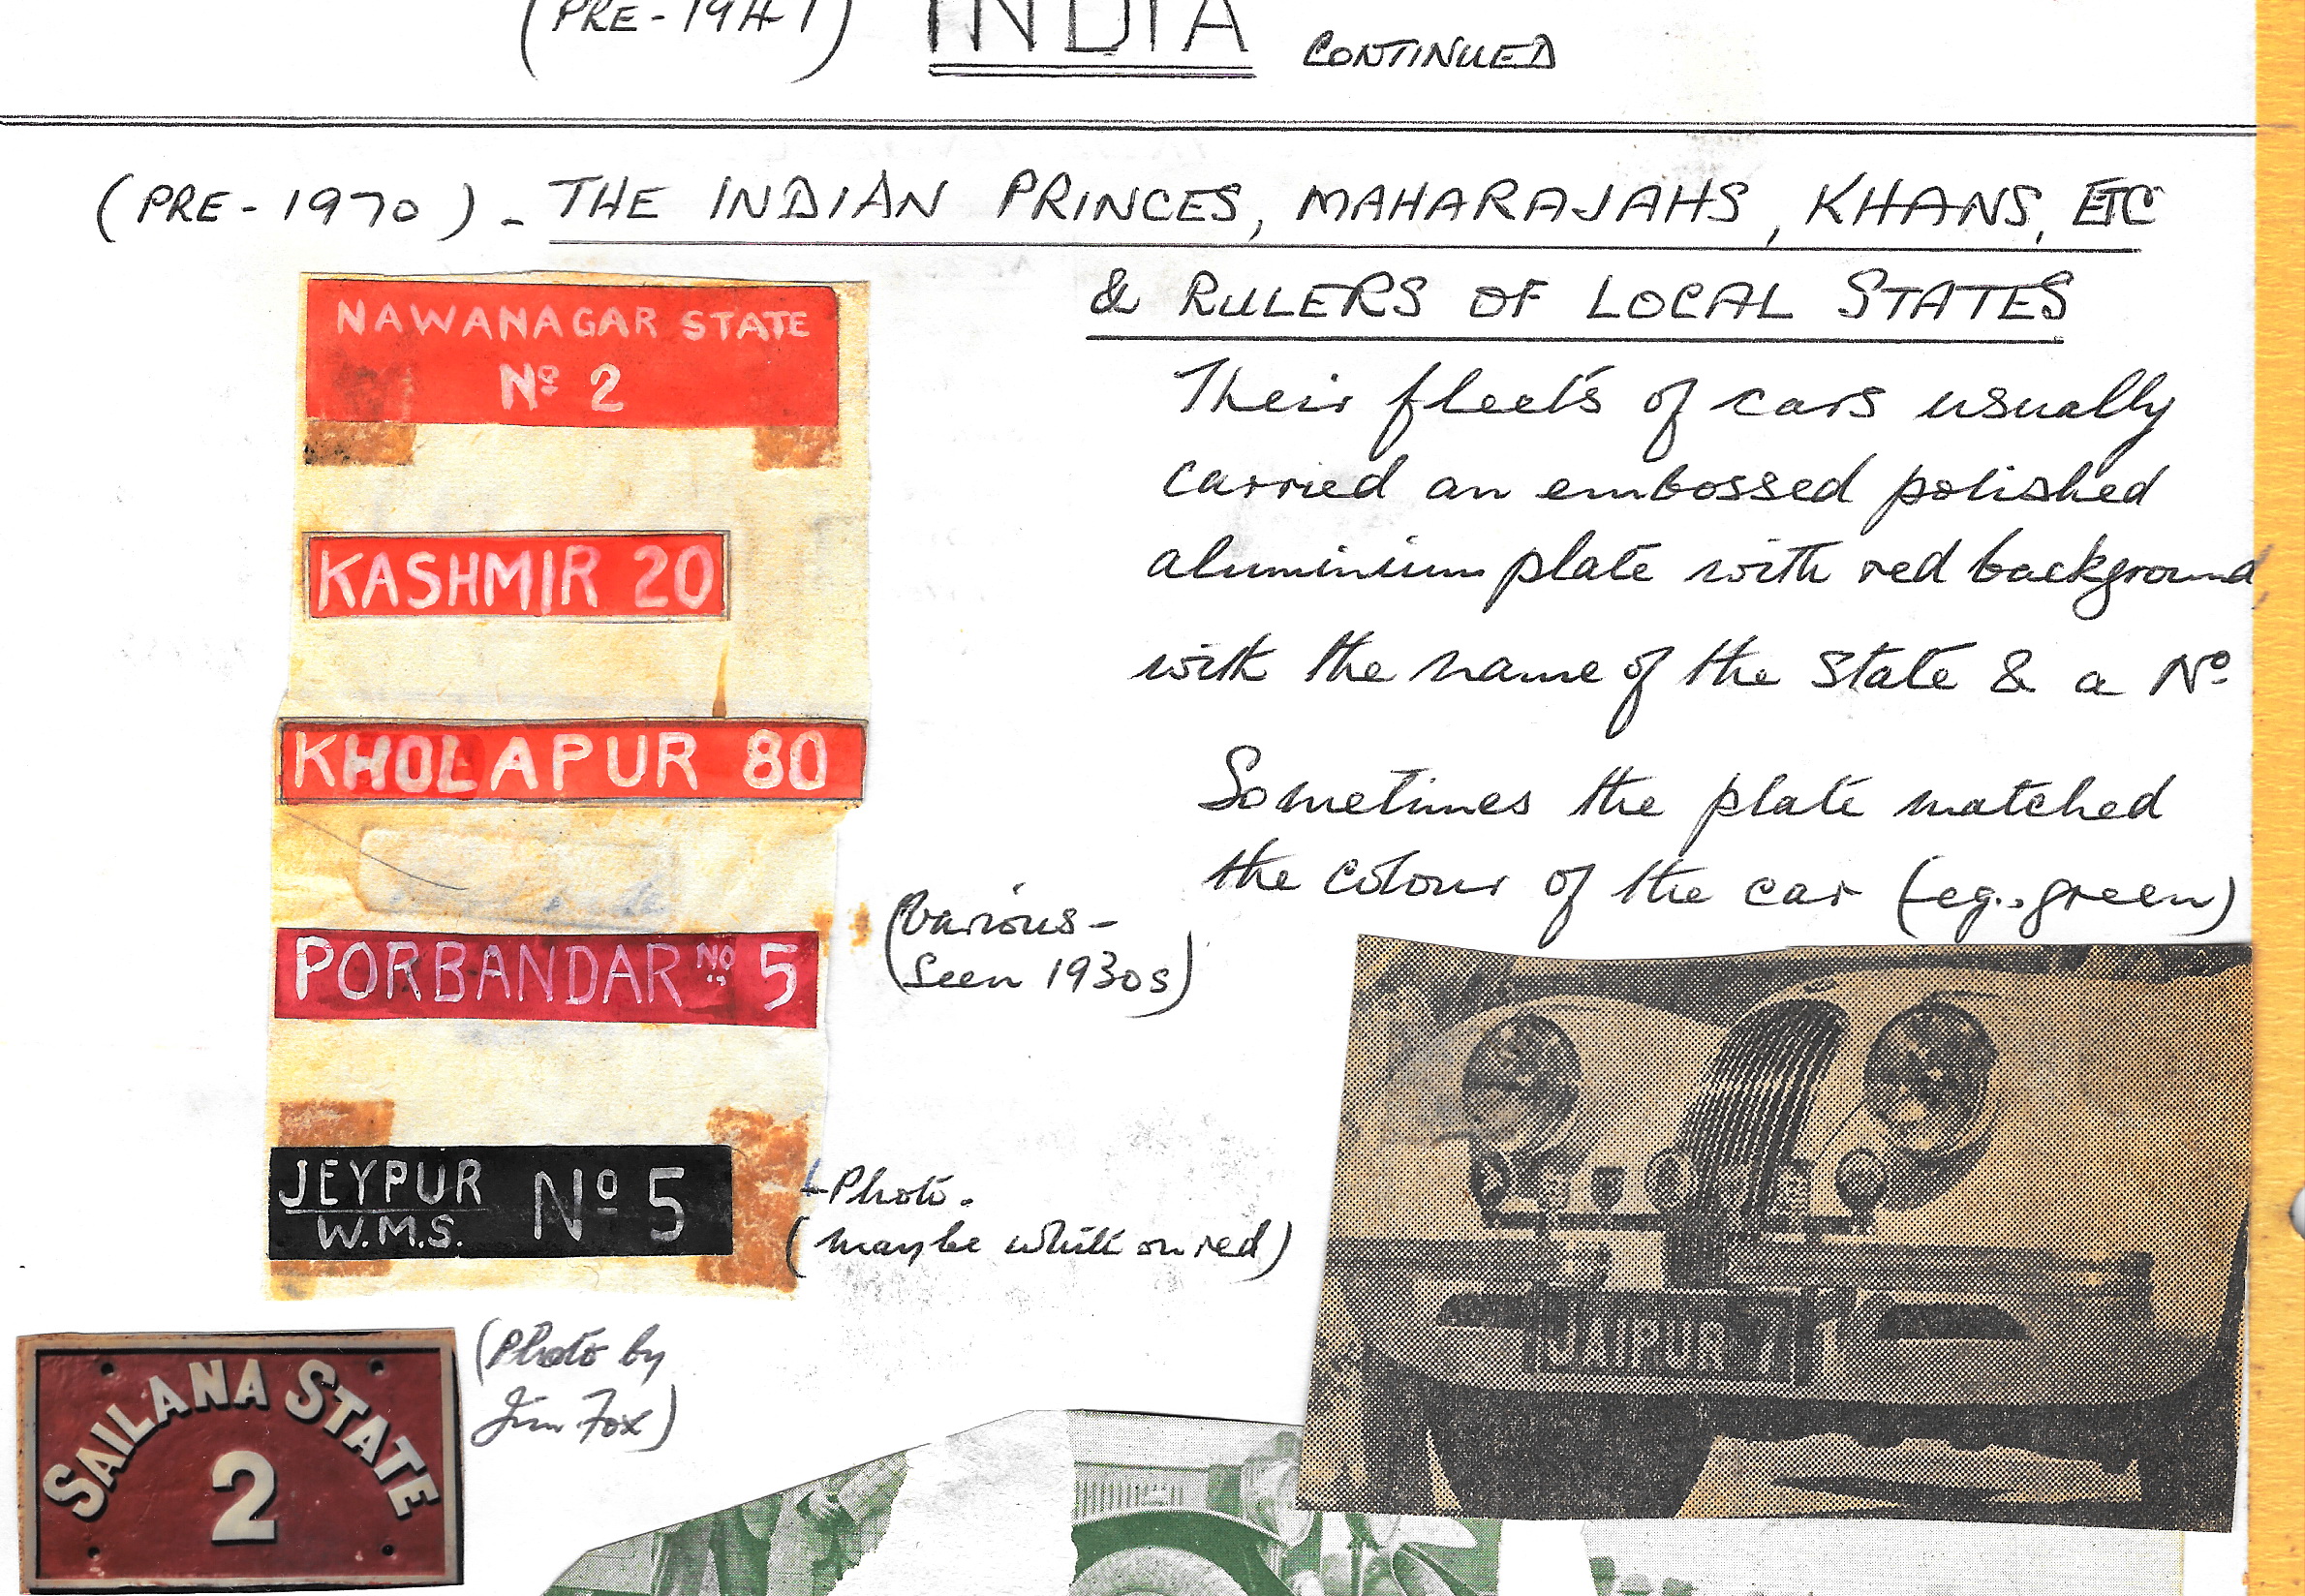 (PRE-1947) INDIA CONTINUED
(PRE-1970) - THE INDIAN PRINCES, MAHARAJAHS, KHANS, ETC
& RULERS OF LOCAL STATES
NAWANAGAR STATE
Nº 2
KASHMIR 20
KHOLAPUR 80
PORBANDAR Nº 5
JEYPUR
W.M.S. Nº 5
Their fleets of cars usually
carried an embossed polished
aluminium plate with red background
with the name of the State & a Nº
Sometimes the plate matched
the colour of the car (eg., green)
(Various -
Seen 1930s)
Photo.
(maybe white on red)
SAILANA STATE
2
(Photo by
Jim Fox)
JAIPUR 7